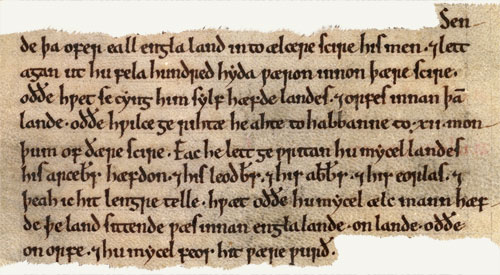 Sen
de þa ofer eall engla land into ælcere scire his men. ⁊ lett
agan ut hu fela hundred hyda wæron innon þære scire.
oððe hwet se cyng him sylf hæfde landes. ⁊ orfes innan þā
lande. oððe hwilce gerihtæ he ahte to habbanne to .xii. mon
þum of ðære scire. Eac he lett gewritan hu mycel landes
his arceb͞r hæfdon. ⁊ his leodb͞r. ⁊ his abb͞r. ⁊ his eorlas. ⁊
þeah ic hit lengre telle. hwæt oððe hu mycel ælc mann hæf
de þe landsittende wæs innan englalande. on lande. oððe
on orfe. ⁊ hu mycel feoh hit wære wurð.